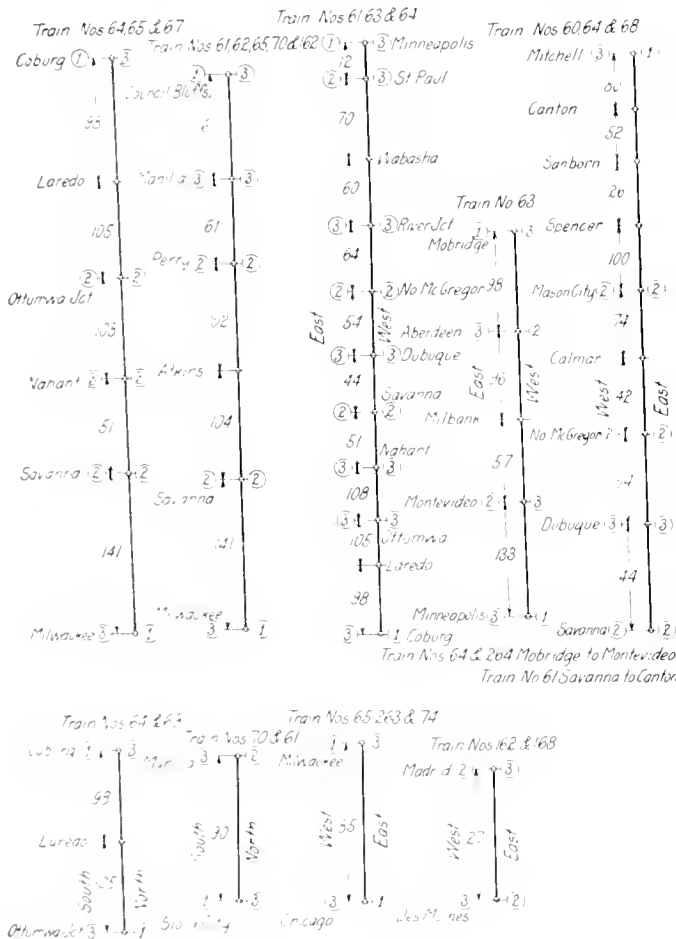 Train Nos 64,65 & 67
Coburg 1 3
Laredo
105
2 2
Ottumwa Jct
105
Nahant 2 2
51
Savanna 2 2
141
Milwaukee 3 1
Train Nos 61,62,65,70 & 162
3
Council Bluffs
Manilla 3 3
61
Perry 2 2
Atkins
104
2 2
Savanna
Milwaukee
3 1
Train Nos 61 63 & 64
1 3 Minneapolis
12
2 3 St Paul
70
Wabasha
60
3 3 River Jct
64
2 2 No McGregor
54
East West
3 3 Dubuque
44
Savanna
2 2
51
Nahant
3 3
108
3 3
105 Ottumwa
Laredo
98
3 1 Coburg
Train No 63
1 3
Mobridge
98
Aberdeen 3 2
East West
Milbank
57
Montevideo 2 3
133
Minneapolis 3 1
Train Nos 60,64 & 68
Mitchell 3 1
Canton
52
Sanborn
26
Spencer
100
Mason City 2 2
74
Calmar
West 42 East
No McGregor 2 2
Dubuque 3 3
44
Savanna 2 2
Train Nos 64 & 264 Mobridge to Montevideo
Train No 61 Savanna to Canton
Train Nos 64 & 65
1 3
Laredo
South North
Ottumwa Jct 3 1
Train Nos 70 & 61
3 2
90
South North
1 3
Train Nos 65 263 & 74
1 3
Milwaukee
West East
3 1
Chicago
Train Nos 162 & 168
Madrid 2 3
West East
3 2
Des Moines